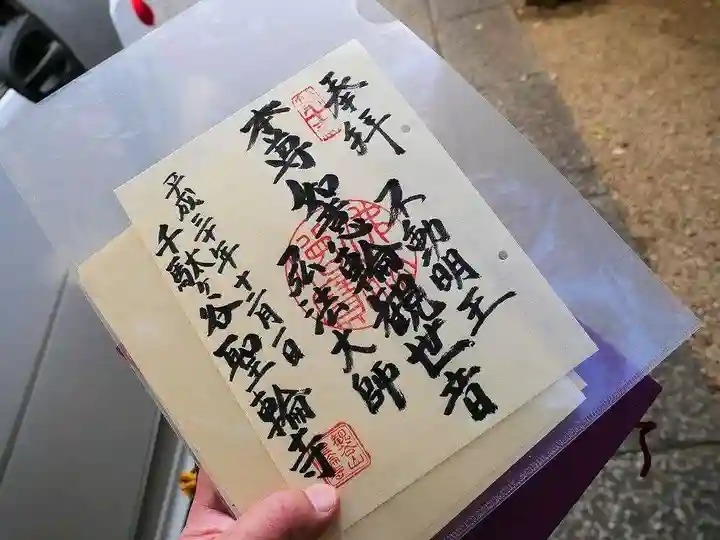 奉拝
不動明王
本尊 如意輪観世音
弘法大師
平成三十年十二月一日
千駄ヶ谷聖輪寺